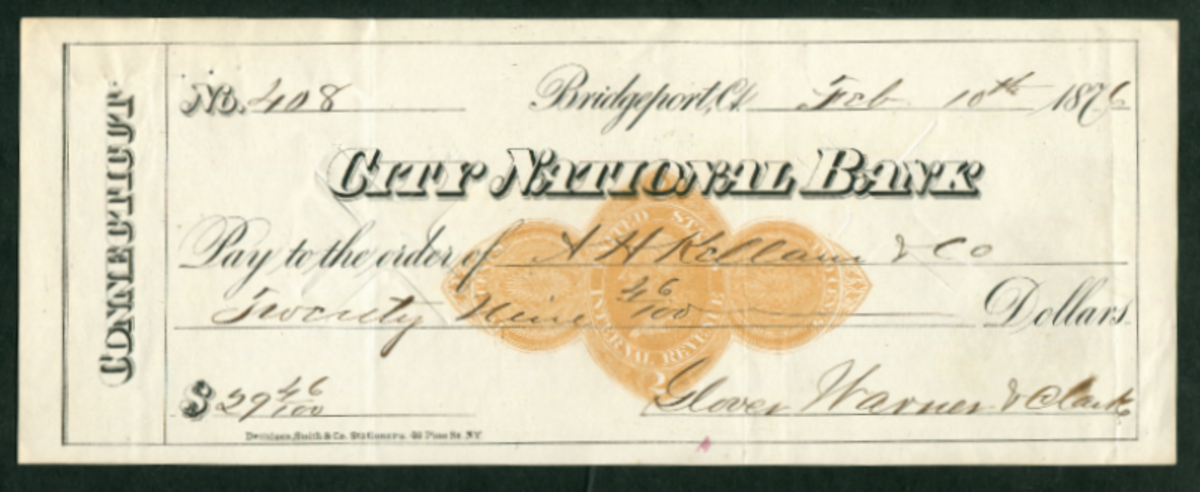 CONNECTICUT
No. 408 Bridgeport, Ct. Feb 10th 1876
CITY NATIONAL BANK
Pay to the order of A H Kellam & Co
Twenty Nine 46/100 Dollars.
UNITED STATES
INTERNAL REVENUE
$ 29 46/100 Glover Warner & Clark
Dennison, Smith & Co. Stationers. Pine St. NY.